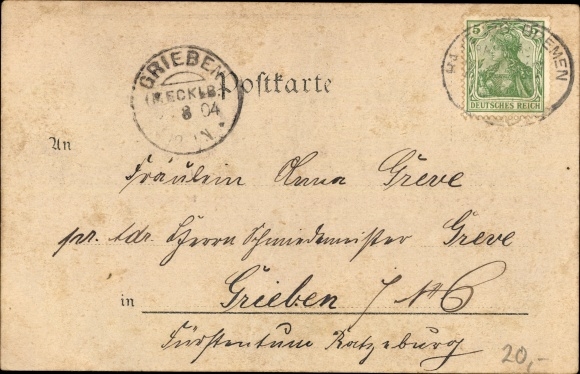 GRIEBEN
(MECKLB.)
8 04
Postkarte
BREMEN
5
DEUTSCHES REICH
An
Fräulein Anna Greve
pr. Adr. Herrn Schmiedemeister Greve
in Grieben
Fürstentum Ratzeburg
20,-